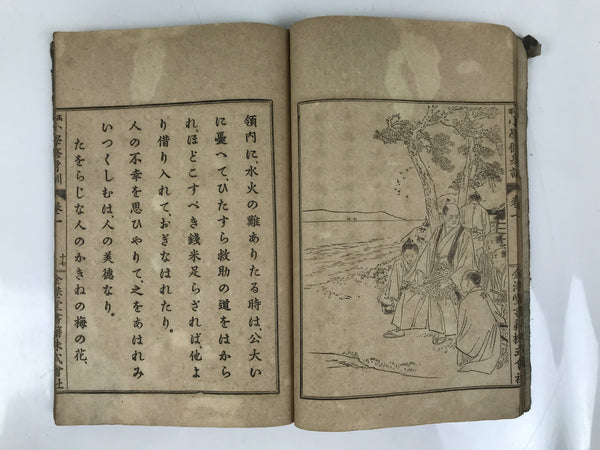 領内に、水火の難ありたる時は、公大い
に憂へて、ひたすら救助の道をはから
れ、ほどこすべき錢米足らざれば、他よ
り借り入れて、おぎなはれたり。
人の不幸を思ひやりて、之をあはれみ
いつくしむは、人の美德なり。
たをらじな人のかきねの梅の花、
小學修身訓 卷一 十七 金港堂書籍株式會社